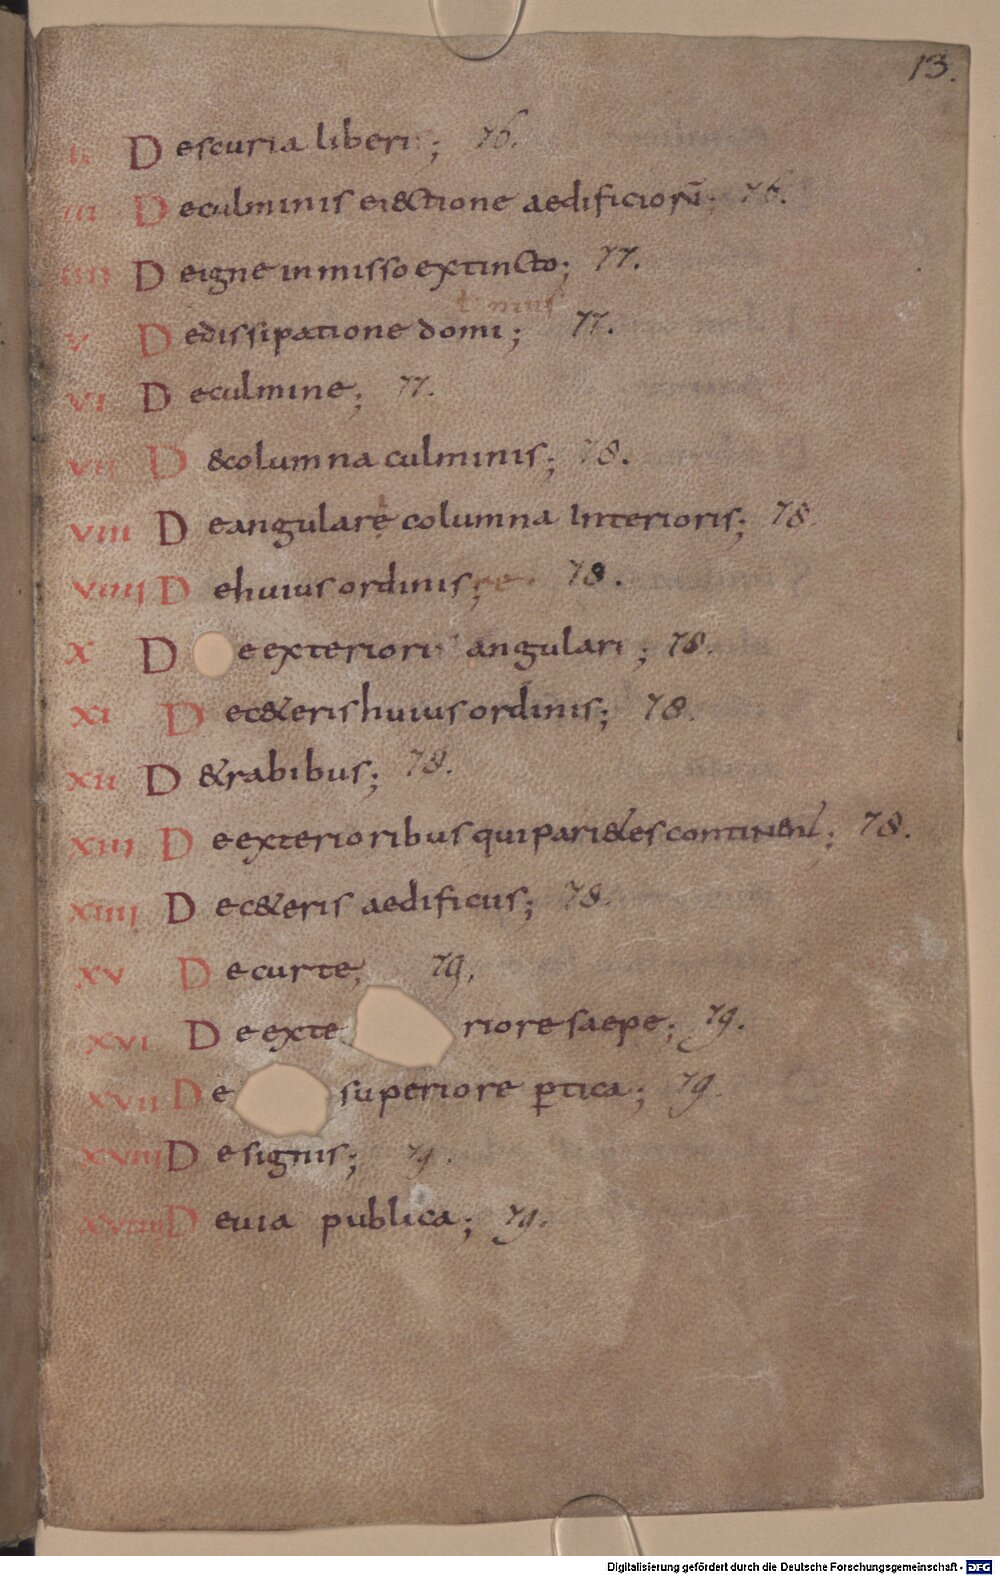 13.
II Descuria liberi; 76.
III Deculminis eiectione aedificiorū; 76.
IIII Deigne inmisso extincto; 77.
V Dedissipatione domi; 77.
VI Deculmine; 77.
VII D&columna culminis; 78.
VIII Deangulare columna Interioris; 78
VIIII Dehuius ordinis; 78.
X De exteriori angulari; 78.
XI Dec&eris huius ordinis; 78.
XII D&rabibus; 78.
XIII Deexterioribus qui pari&es continent; 78.
XIIII Dec&eris aedificiis; 78.
XV Decurte; 79.
XVI Deexteriore saepe; 79.
XVII De superiore ꝑtica; 79.
XVIII Designis; 79.
XVIIII Deuia publica; 79.
Digitalisierung gefördert durch die Deutsche Forschungsgemeinschaft - DFG